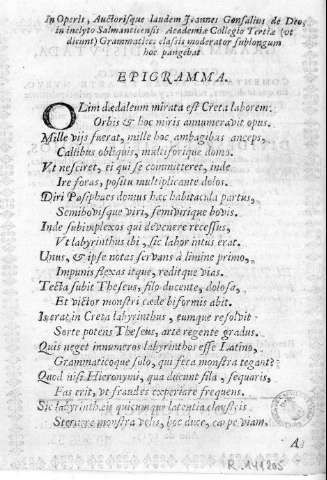 In Operis, Auctorisque laudem Joannes Gonsalius de Deo,
in inclyto Salmanticensis Academiæ Collegio Tertiæ (vt
dicunt) Grammatices classis moderator sublongum
hoc pangebat
EPIGRAMMA.
OLim dædaleum mirata est Creta laborem:
Orbis & hoc miris annumeravit opus.
Mille vijs fuerat, mille hoc ambagibus anceps,
Callibus obliquis, multiforique domo.
Vt nesciret, ei qui se committeret, inde
Ire foras, positu multiplicante dolos.
Diri Pasiphaes domus hæc habitacula partus,
Semibovisque viri, semivirique bovis.
Inde subimplexos qui devenere recessus,
Vt labyrinthus ibi, sic labor intus erat.
Unus, & ipse notas servans à limine primo,
Impunis flexas itque, reditque vias.
Tecta subit Theseus, filo ducente, dolosa,
Et victor monstri cæde biformis abit.
Is erat in Creta labyrinthus, eumque resolvit
Sorte potens Theseus, arte regente gradus.
Quis neget innumeros labyrinthos esse Latino,
Grammaticoque solo, qui fera monstra tegant?
Quod nisi Hieronymi, qua ducunt fila, sequaris,
Fas erit, vt fraudes experiare frequens.
Sic labyrinthæis quicumque latentia claustris
Sternere monstra velis, hoc duce, carpe viam.
A
R. 141205